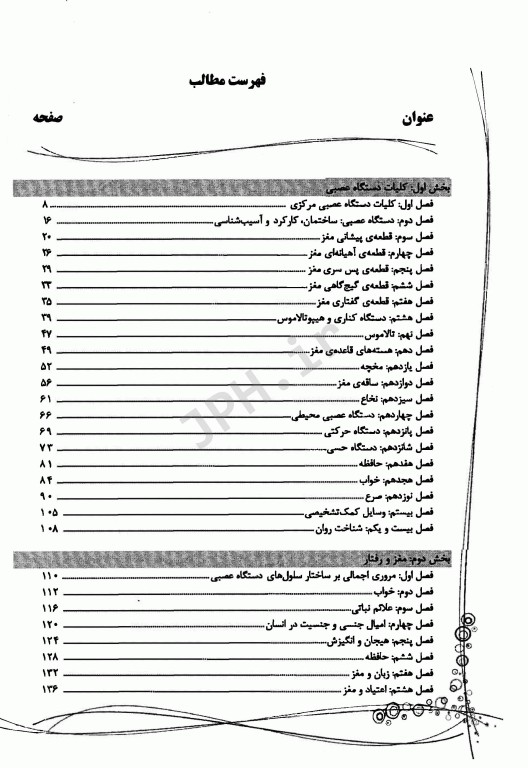 فهرست مطالب
عنوان صفحه
بخش اول: کلیات دستگاه عصبی
فصل اول: کلیات دستگاه عصبی مرکزی ۸
فصل دوم: دستگاه عصبی: ساختمان، کارکرد و آسیب‌شناسی ۱۶
فصل سوم: قطعه‌ی پیشانی مغز ۲۰
فصل چهارم: قطعه‌ی آهیانه‌ای مغز ۲۶
فصل پنجم: قطعه‌ی پس سری مغز ۲۹
فصل ششم: قطعه‌ی گیج‌گاهی مغز ۳۳
فصل هفتم: قطعه‌ی گفتاری مغز ۳۵
فصل هشتم: دستگاه کناری و هیپوتالاموس ۳۹
فصل نهم: تالاموس ۴۷
فصل دهم: هسته‌های قاعده‌ی مغز ۴۹
فصل یازدهم: مخچه ۵۲
فصل دوازدهم: ساقه‌ی مغز ۵۶
فصل سیزدهم: نخاع ۶۱
فصل چهاردهم: دستگاه عصبی محیطی ۶۶
فصل پانزدهم: دستگاه حرکتی ۶۹
فصل شانزدهم: دستگاه حسی ۷۳
فصل هفدهم: حافظه ۸۱
فصل هجدهم: خواب ۸۴
فصل نوزدهم: صرع ۹۰
فصل بیستم: وسایل کمک‌تشخیصی ۱۰۵
فصل بیست و یکم: شناخت روان ۱۰۸
بخش دوم: مغز و رفتار
فصل اول: مروری اجمالی بر ساختار سلول‌های دستگاه عصبی ۱۱۰
فصل دوم: خواب ۱۱۲
فصل سوم: علائم نباتی ۱۱۶
فصل چهارم: امیال جنسی و جنسیت در انسان ۱۲۰
فصل پنجم: هیجان و انگیزش ۱۲۴
فصل ششم: حافظه ۱۲۸
فصل هفتم: زبان و مغز ۱۳۲
فصل هشتم: اعتیاد و مغز ۱۳۶
JPH.ir